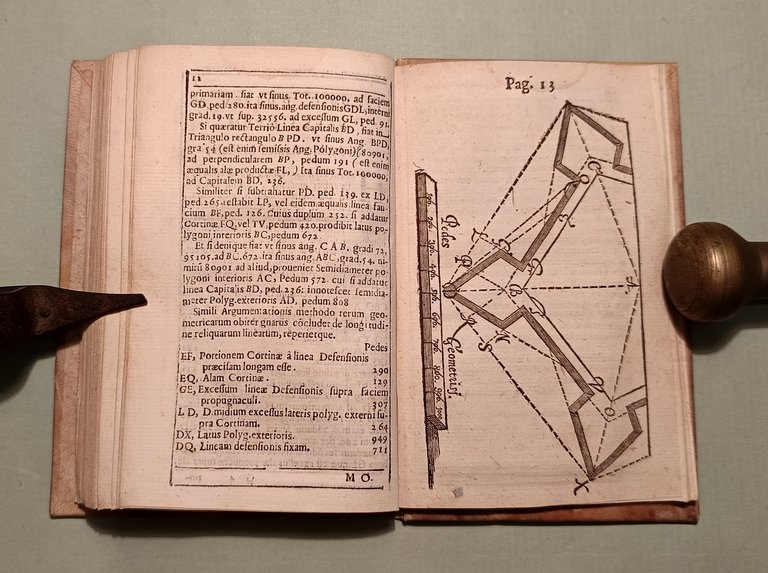 12
primariam. fiat vt sinus Tot. 100000, ad faciem
GD. ped 280. ita sinus, ang. defensionis GDL, interno
grad. 19. vt sup. 32556. ad excessum GL, ped. 91.
Si quæratur Terriò Linea Capitalis BD, fiat in
Triangulo rectangulo B PD. vt sinus Ang. BPD,
gra. 54 (est enim semissis Ang. Polygoni) (80901,
ad perpendicularem BP, pedum 191 (est enim
æqualis alæ productæ FL,) ita sinus Tot. 100000,
ad Capitalem BD, 236.
Similiter si subtrahatur PD. ped. 139. ex LD,
ped 265. restabit LP, vel eidem æqualis linea fau-
cium BF, ped. 126. cuius duplum 252. si addatur
Cortinæ FQ, vel TV, pedum 420. prodibit latus po-
lygoni interioris BC, pedum 672.
Et si denique fiat vt sinus ang. C A B, gradi 72,
95105, ad BC, 672. ita sinus ang. ABC, grad. 54. ni-
mirũ 80901 ad aliud, proueniet Semidiameter po-
lygoni interioris AC, Pedum 572. cui si addatur
linea Capitalis BD, ped. 236: innotescet semidia-
meter Polyg. exterioris AD, pedum 808
Simili Argumentationis methodo rerum geo-
metricarum obiter gnarus cõcludet de longitudi-
ne reliquarum linearum, reperietque.
Pedes
EF, Portionem Cortinæ à linea Defensionis
præcisam longam esse. 290
EQ, Alam Cortinæ. 129
GE, Excessum lineæ Defensionis supra faciem
propugnaculi. 307
LD, Dimidium excessus lateris polyg. externi su-
pra Cortinam. 264
DX, Latus Polyg. exterioris. 949
DQ, Lineam defensionis fixam. 711
M O.
Pag. 13
Pedes
Geometrisf.
C
O
L
G
P
B
A
S
X